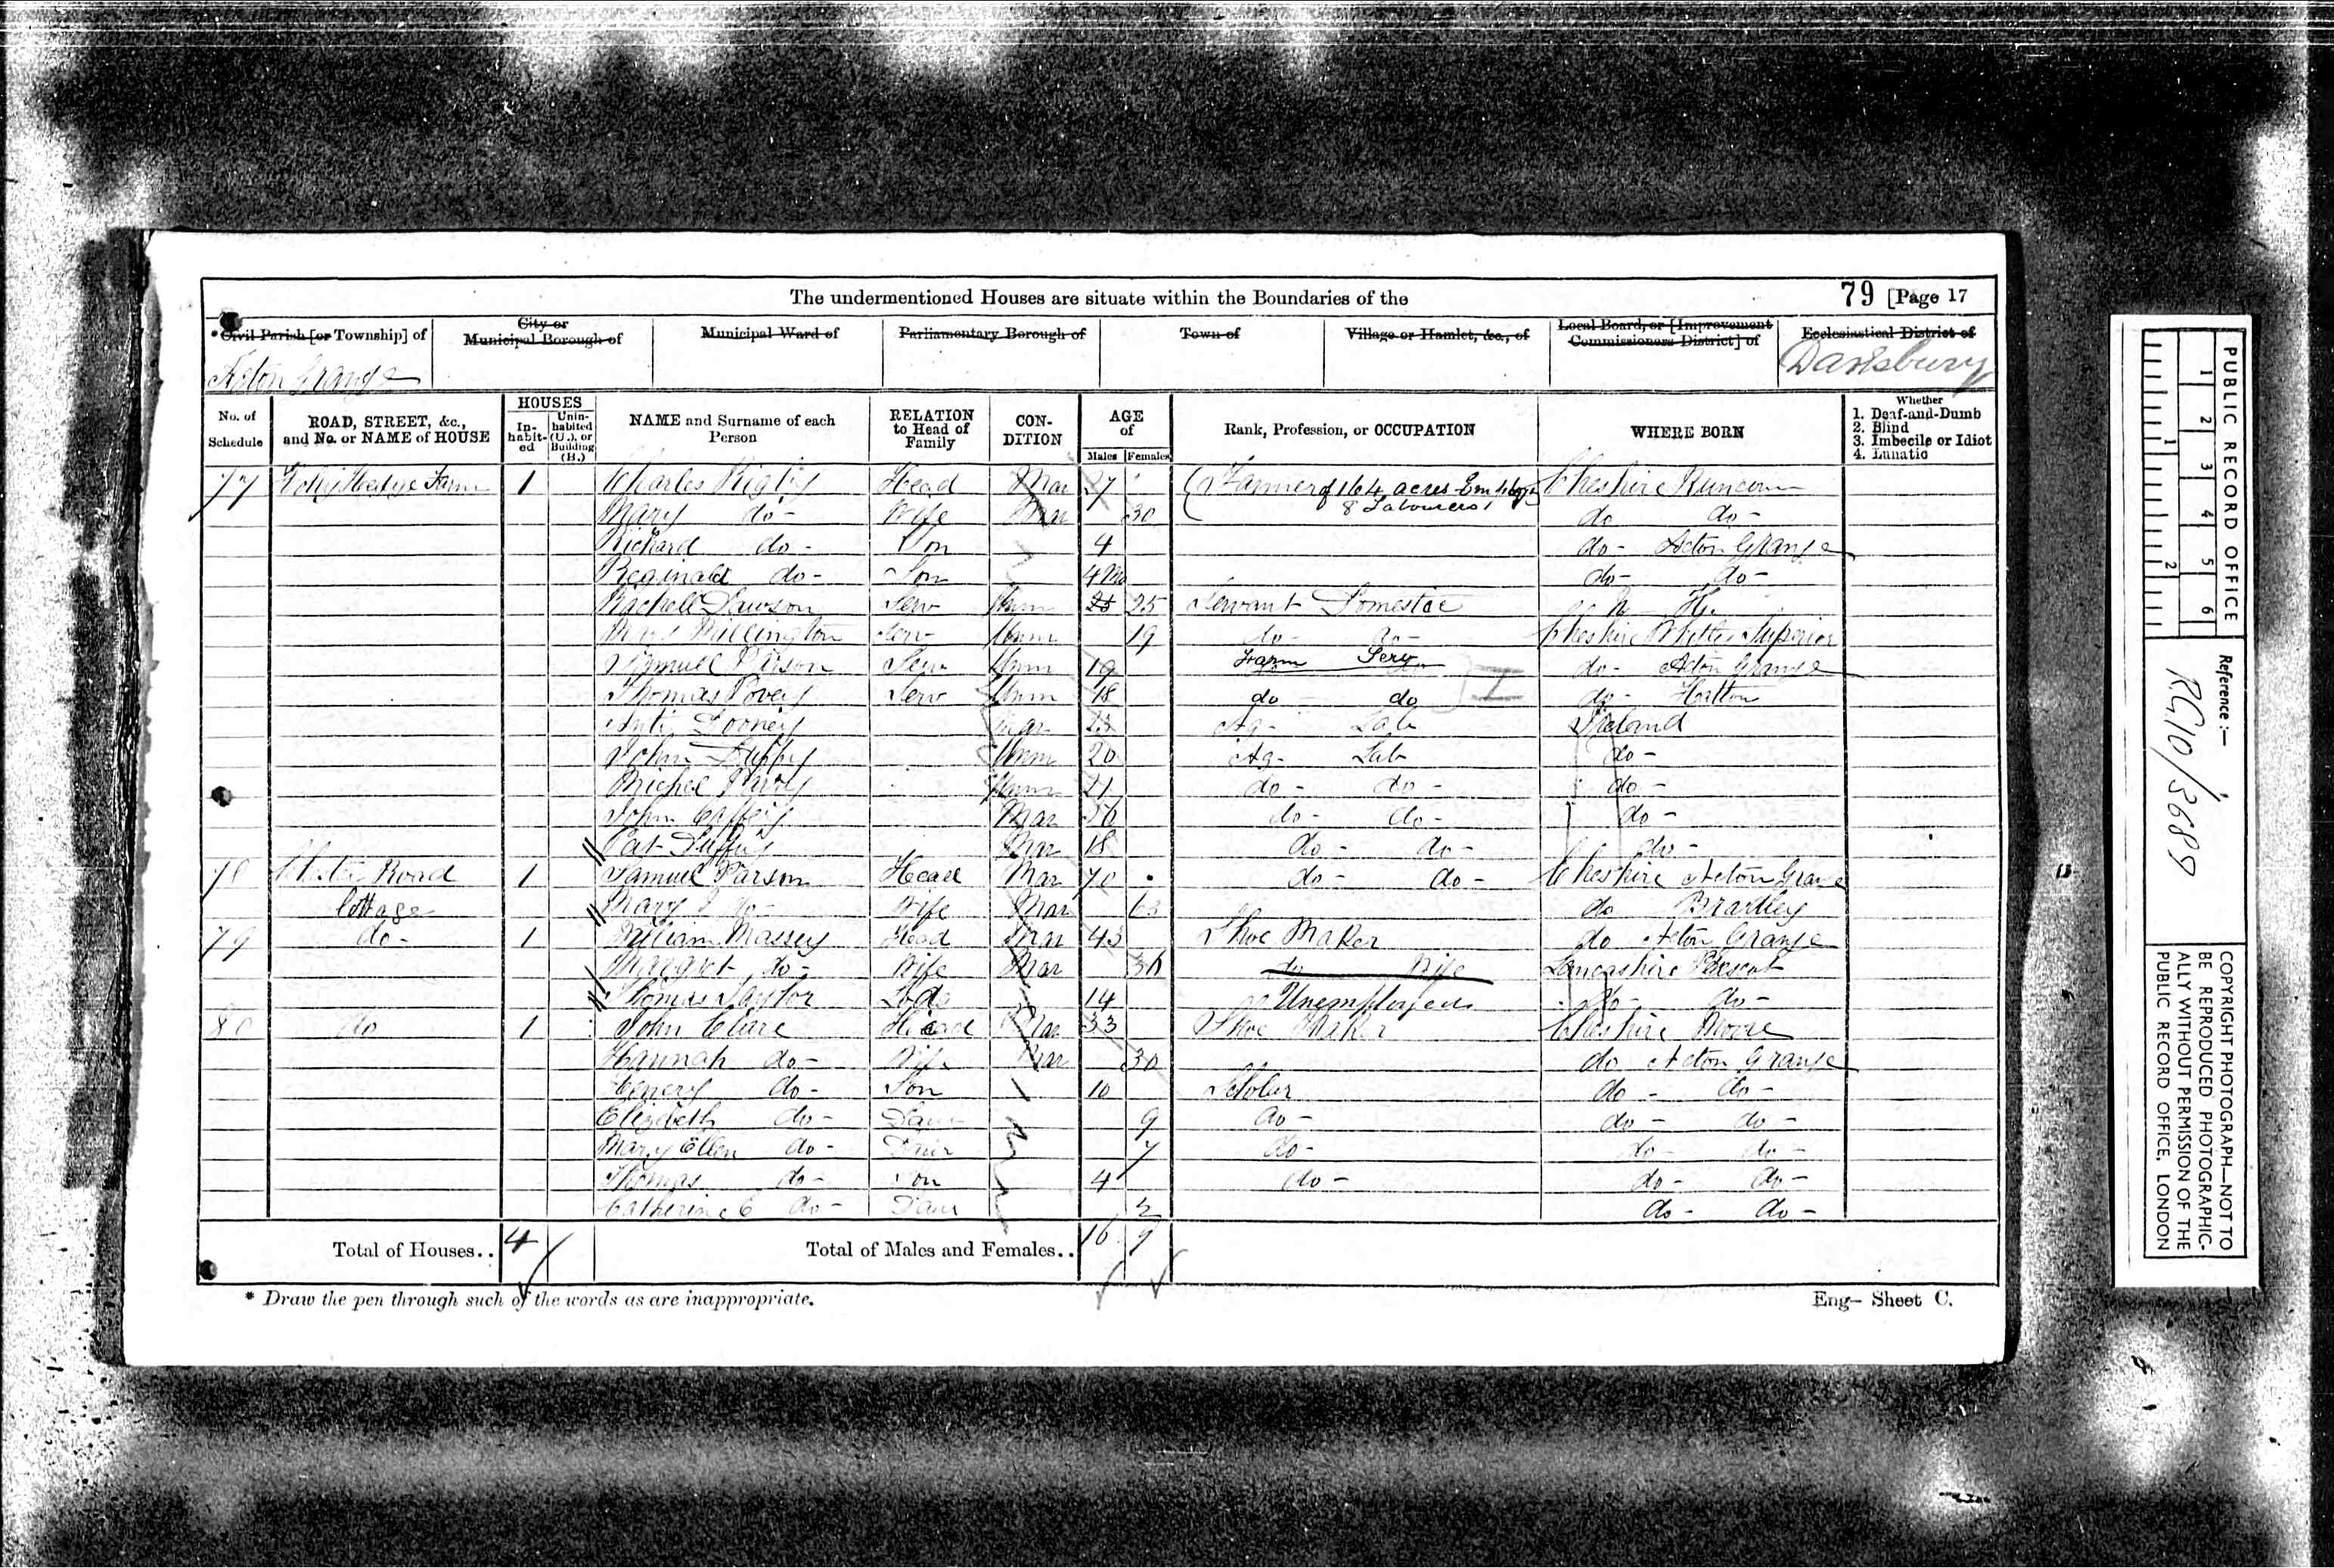 The undermentioned Houses are situate within the Boundaries of the 79 [Page 17
* Civil Parish [or Township] of City or Municipal Borough of Municipal Ward of Parliamentary Borough of Town of Village or Hamlet, &c., of Local Board, or [Improvement Commissioners District] of Ecclesiastical District of
Acton Grange Daresbury
No. of Schedule ROAD, STREET, &c., and No. or NAME of HOUSE HOUSES Inhabited Uninhabited (U.), or Building (B.) NAME and Surname of each Person RELATION to Head of Family CONDITION AGE of Males Females Rank, Profession, or OCCUPATION WHERE BORN Whether 1. Deaf-and-Dumb 2. Blind 3. Imbecile or Idiot 4. Lunatic
77 Farm 1 Charles Rigby Head Mar 27 Farmer of 164 acres Employs 8 Labourers Cheshire Runcorn
Mary do - Wife Mar 30 do do -
Richard do - Son 4 do - Acton Grange
Reginald do - Son 4 Mo do - do -
Rachell Lawson Serv Unm 25 25 Servant Domestic
Millington Serv Unm 19 do - do - Cheshire Superior
Samuel Parson Serv Unm 19 Farm Serv do - Acton Grange
Thomas Povey Serv Unm 18 do do do - Hatton
Mar 23 Ag - Lab Ireland
John Duffy Unm 20 Ag - Lab do -
Michel Unm 21 do - do - do -
John Mar 36 do - do - do -
Pat Duffy Mar 18 do - do - do -
78 Chester Road 1 Samuel Parson Head Mar 70 do - do - Cheshire Acton Grange
Cottage Mary do - Wife Mar 63 do
79 do - 1 William Massey Head Mar 43 Shoe Maker do Acton Grange
Margret do - Wife Mar 36 do Wife Lancashire Prescot
Thomas Taylor Lod 14 Unemployed do - do -
80 do 1 John Clare Head Mar 33 Shoe Maker Cheshire Moore
Hannah do - Wife Mar 30 do Acton Grange
Henery do - Son 10 Scholar do - do -
Elizabeth do - Daur 9 do - do - do -
Mary Ellen do - Daur 7 do - do - do -
Thomas do - Son 4 do - do - do -
Catherine E do - Daur 2 do - do -
Total of Houses.. 4 Total of Males and Females.. 16 9
* Draw the pen through such of the words as are inappropriate. Eng- Sheet C.
PUBLIC RECORD OFFICE
1 2 3 4 5 6
1 2
Reference :-
RG10/3689
COPYRIGHT PHOTOGRAPH—NOT TO BE REPRODUCED PHOTOGRAPHICALLY WITHOUT PERMISSION OF THE PUBLIC RECORD OFFICE, LONDON